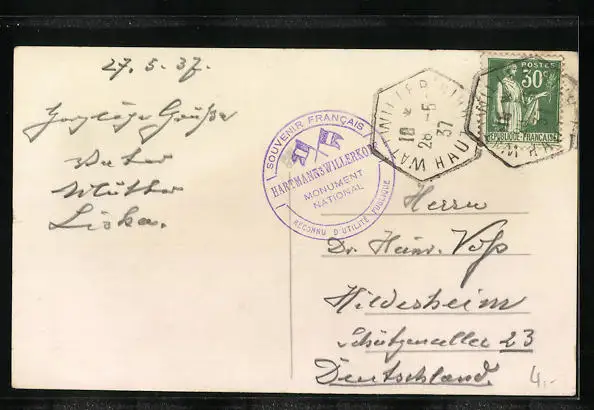 27. 5. 37.
Herzliche Grüße
Vater
Mutter
Liska.
SOUVENIR FRANÇAIS
HARTMANNSWILLERKOPF
MONUMENT
NATIONAL
RECONNU D'UTILITÉ PUBLIQUE
WILLER
18
28-5
37
HAUT
POSTES
30c
REPUBLIQUE FRANÇAISE
Herrn
Dr. Heinr. Voß
Hildesheim
Schützenallee 23
Deutschland.
4,-